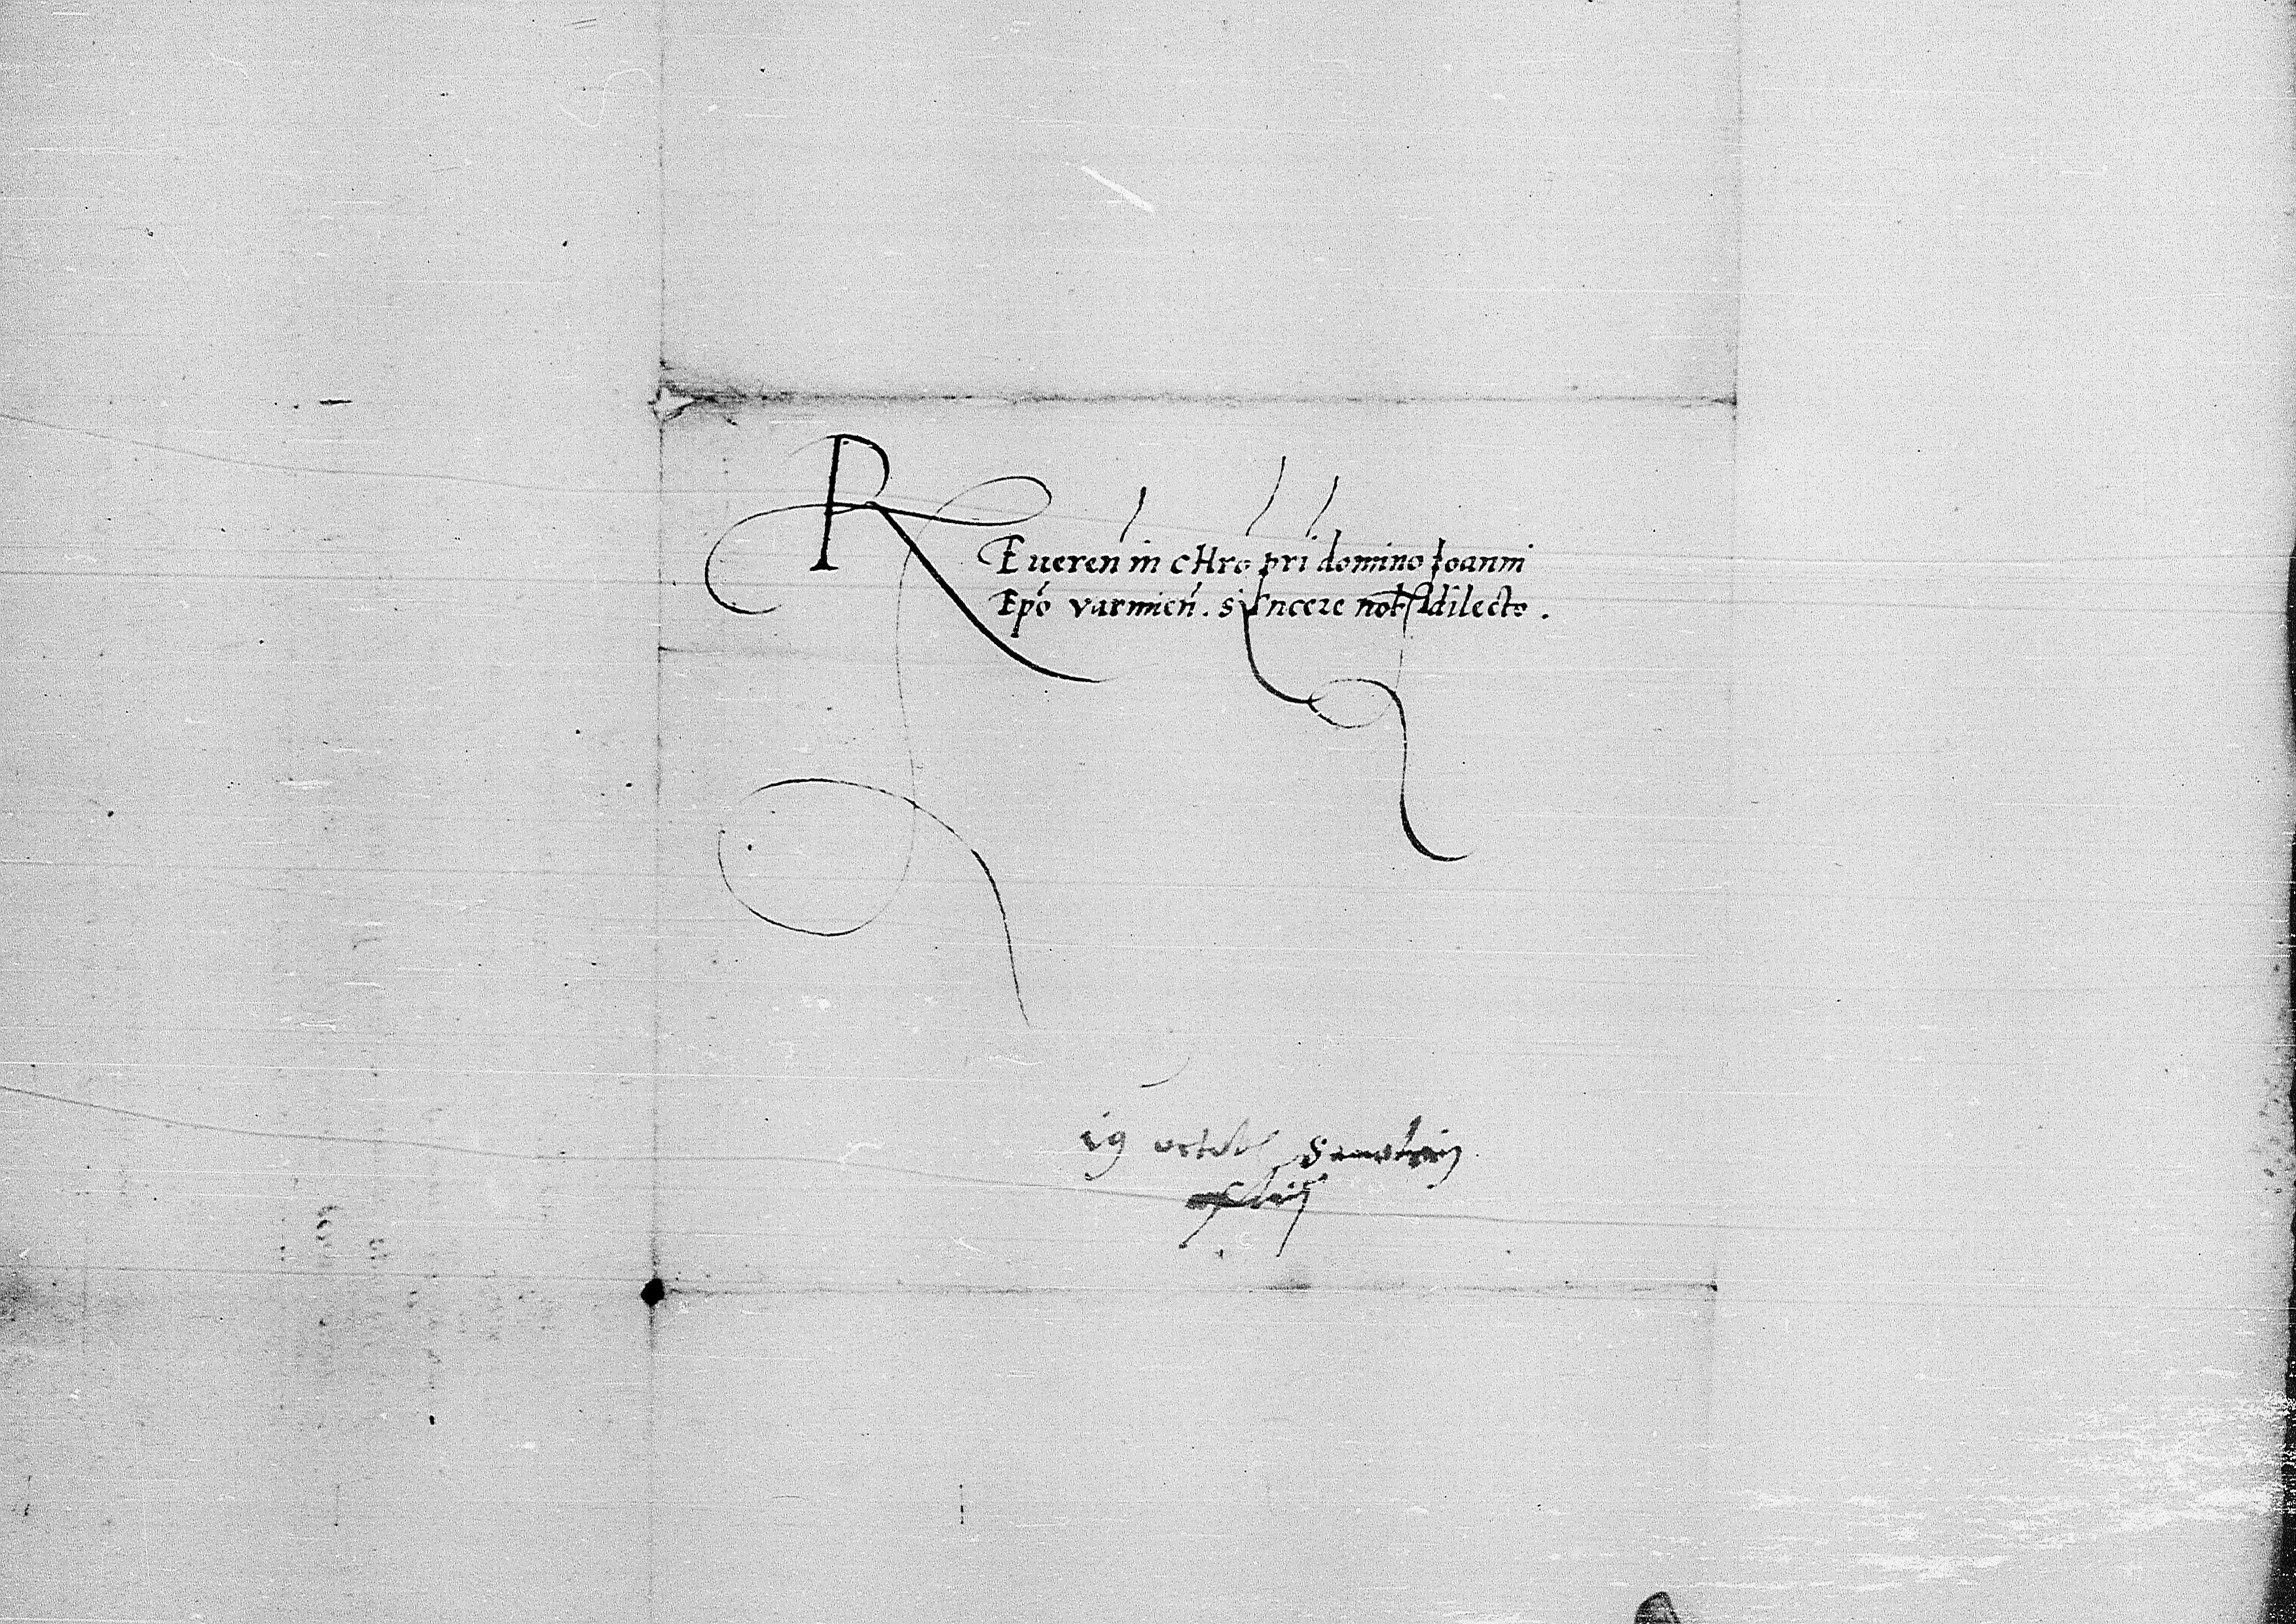 REueren̄ in cHro pri domino Ioanni
Epō varmien̄. sincere nob dilecto.
19 octob